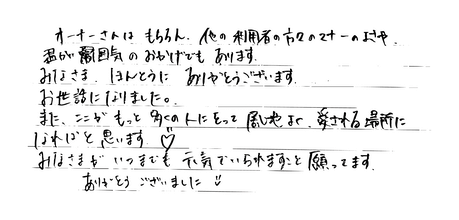 オーナーさんは もちろん、他の利用者の方々のマナーのよさや、
雰囲気のおかげでもあります。
みなさま、ほんとうに ありがとうございます。
お世話になりました。
また、ここが もっと 多くの人にとって 居心地よく、愛される場所に
なればと思います ♡
みなさまが いつまでも 元気でいられますこと 願ってます。
ありがとう ございました